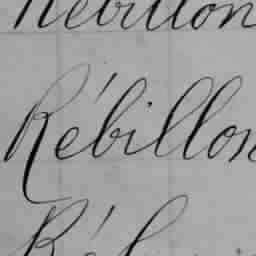 Rébillon
Rébillon